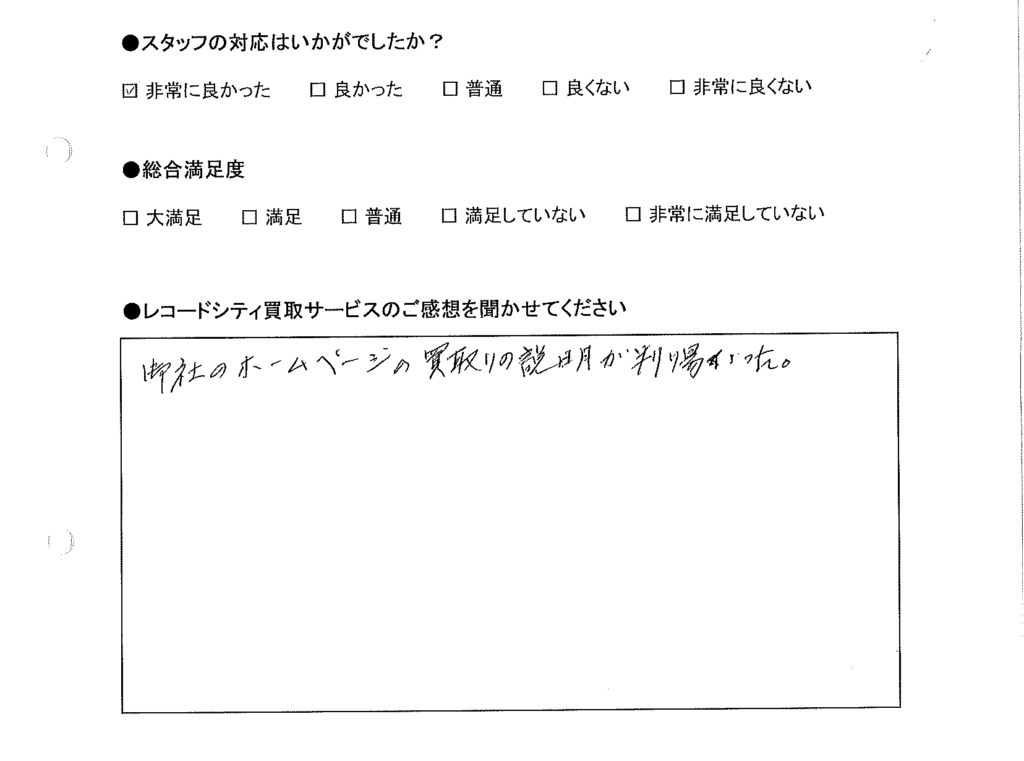 ●スタッフの対応はいかがでしたか？
☑ 非常に良かった □ 良かった □ 普通 □ 良くない □ 非常に良くない
●総合満足度
□ 大満足 □ 満足 □ 普通 □ 満足していない □ 非常に満足していない
●レコードシティ買取サービスのご感想を聞かせてください
御社のホームページの買取りの説明が判り易かった。